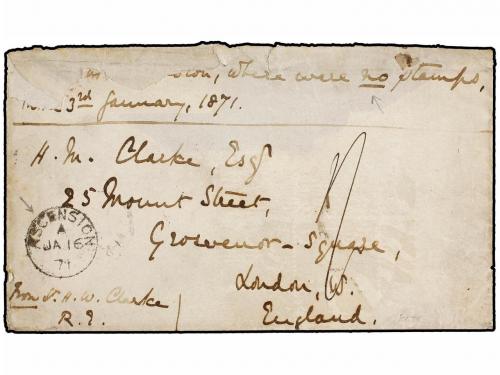 sion, where were no stamps,
3rd January, 1871.
H. M. Clarke, Esqr
25 Mount Street,
Grosvenor-Square,
London, W.
England.
ASCENSION
A
JA 16
71
From Lt. H. W. Clarke
R.E.